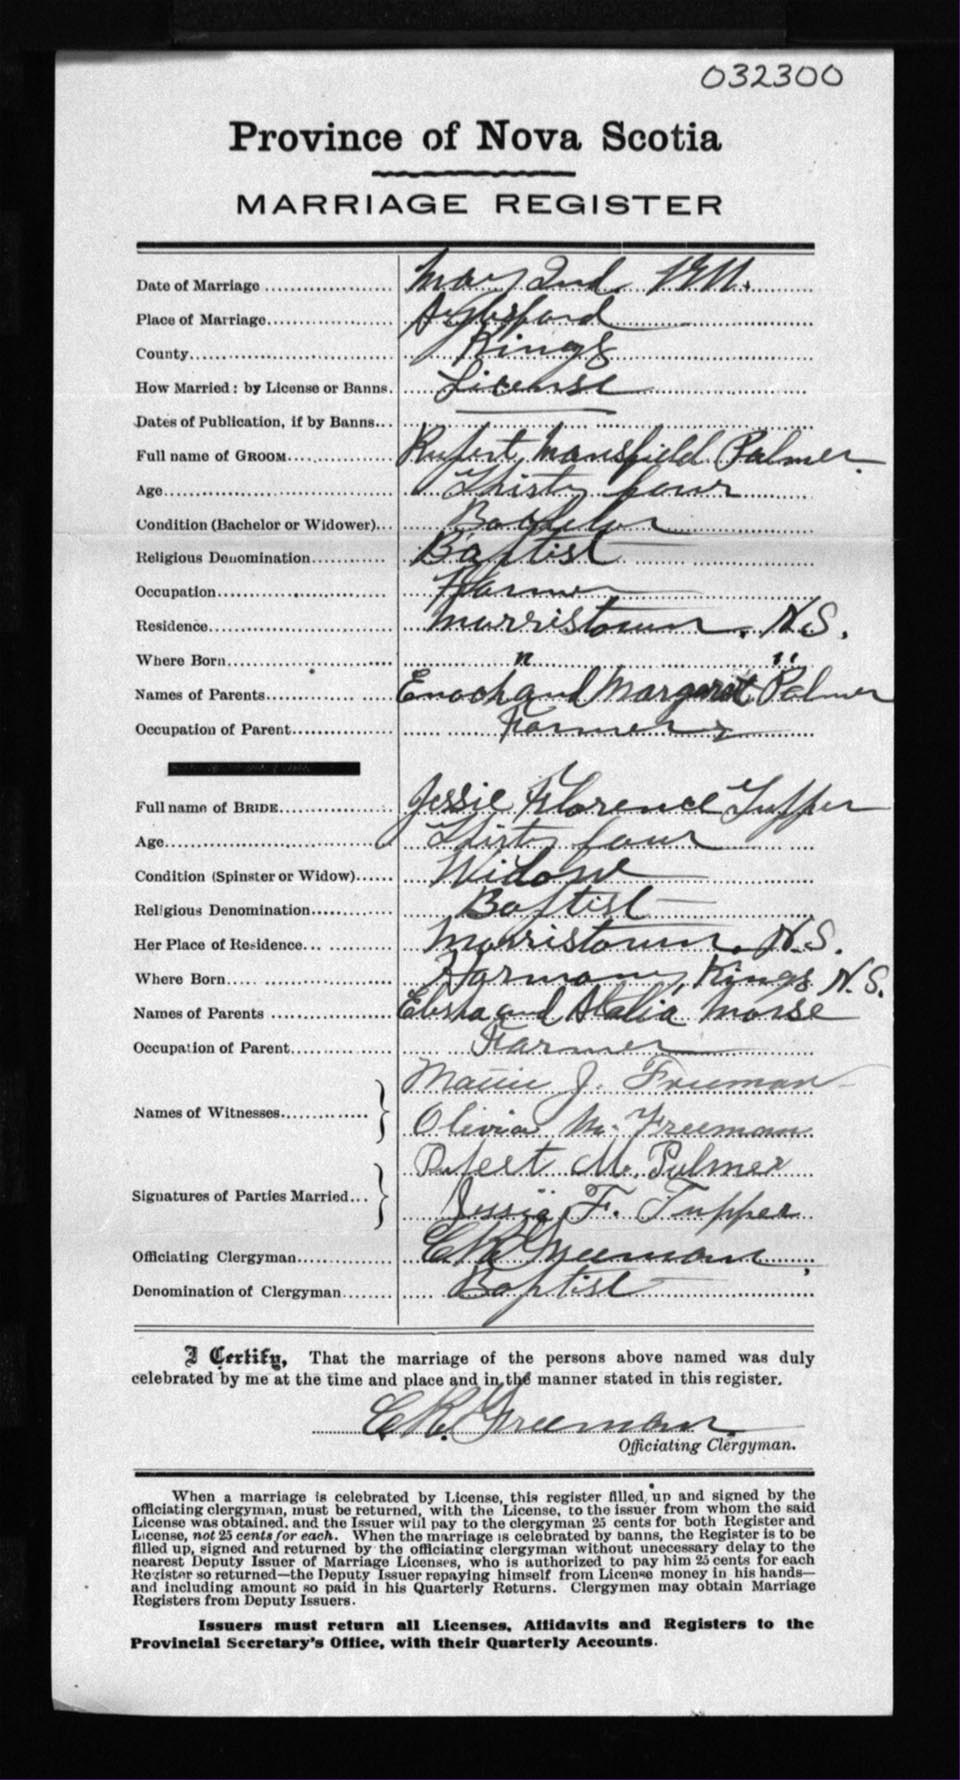 032300
Province of Nova Scotia
MARRIAGE REGISTER
Date of Marriage May 2nd. 1911.
Place of Marriage Aylesford
County Kings
How Married: by License or Banns. License
Dates of Publication, if by Banns
Full name of GROOM Rupert Mansfield Palmer
Age Thirty four
Condition (Bachelor or Widower) Bachelor
Religious Denomination Baptist
Occupation Farmer
Residence Morristown. N.S.
Where Born " "
Names of Parents Enoch and Margaret Palmer
Occupation of Parent Farmer
Full name of BRIDE Jessie Florence Tupper
Age Thirty four
Condition (Spinster or Widow) Widow
Religious Denomination Baptist
Her Place of Residence Morristown. N.S.
Where Born Harmony, Kings N.S.
Names of Parents and Morse
Occupation of Parent Farmer
Names of Witnesses J. Freeman
Olivia M. Freeman
Signatures of Parties Married Rupert M. Palmer
Jessie F. Tupper
Officiating Clergyman Freeman
Denomination of Clergyman Baptist
I Certify, That the marriage of the persons above named was duly
celebrated by me at the time and place and in the manner stated in this register.
Freeman
Officiating Clergyman.
When a marriage is celebrated by License, this register filled up and signed by the
officiating clergyman, must be returned, with the License, to the issuer from whom the said
License was obtained, and the Issuer will pay to the clergyman 25 cents for both Register and
License, not 25 cents for each. When the marriage is celebrated by banns, the Register is to be
filled up, signed and returned by the officiating clergyman without unecessary delay to the
nearest Deputy Issuer of Marriage Licenses, who is authorized to pay him 25 cents for each
Register so returned—the Deputy Issuer repaying himself from License money in his hands—
and including amount so paid in his Quarterly Returns. Clergymen may obtain Marriage
Registers from Deputy Issuers.
Issuers must return all Licenses, Affidavits and Registers to the
Provincial Secretary's Office, with their Quarterly Accounts.